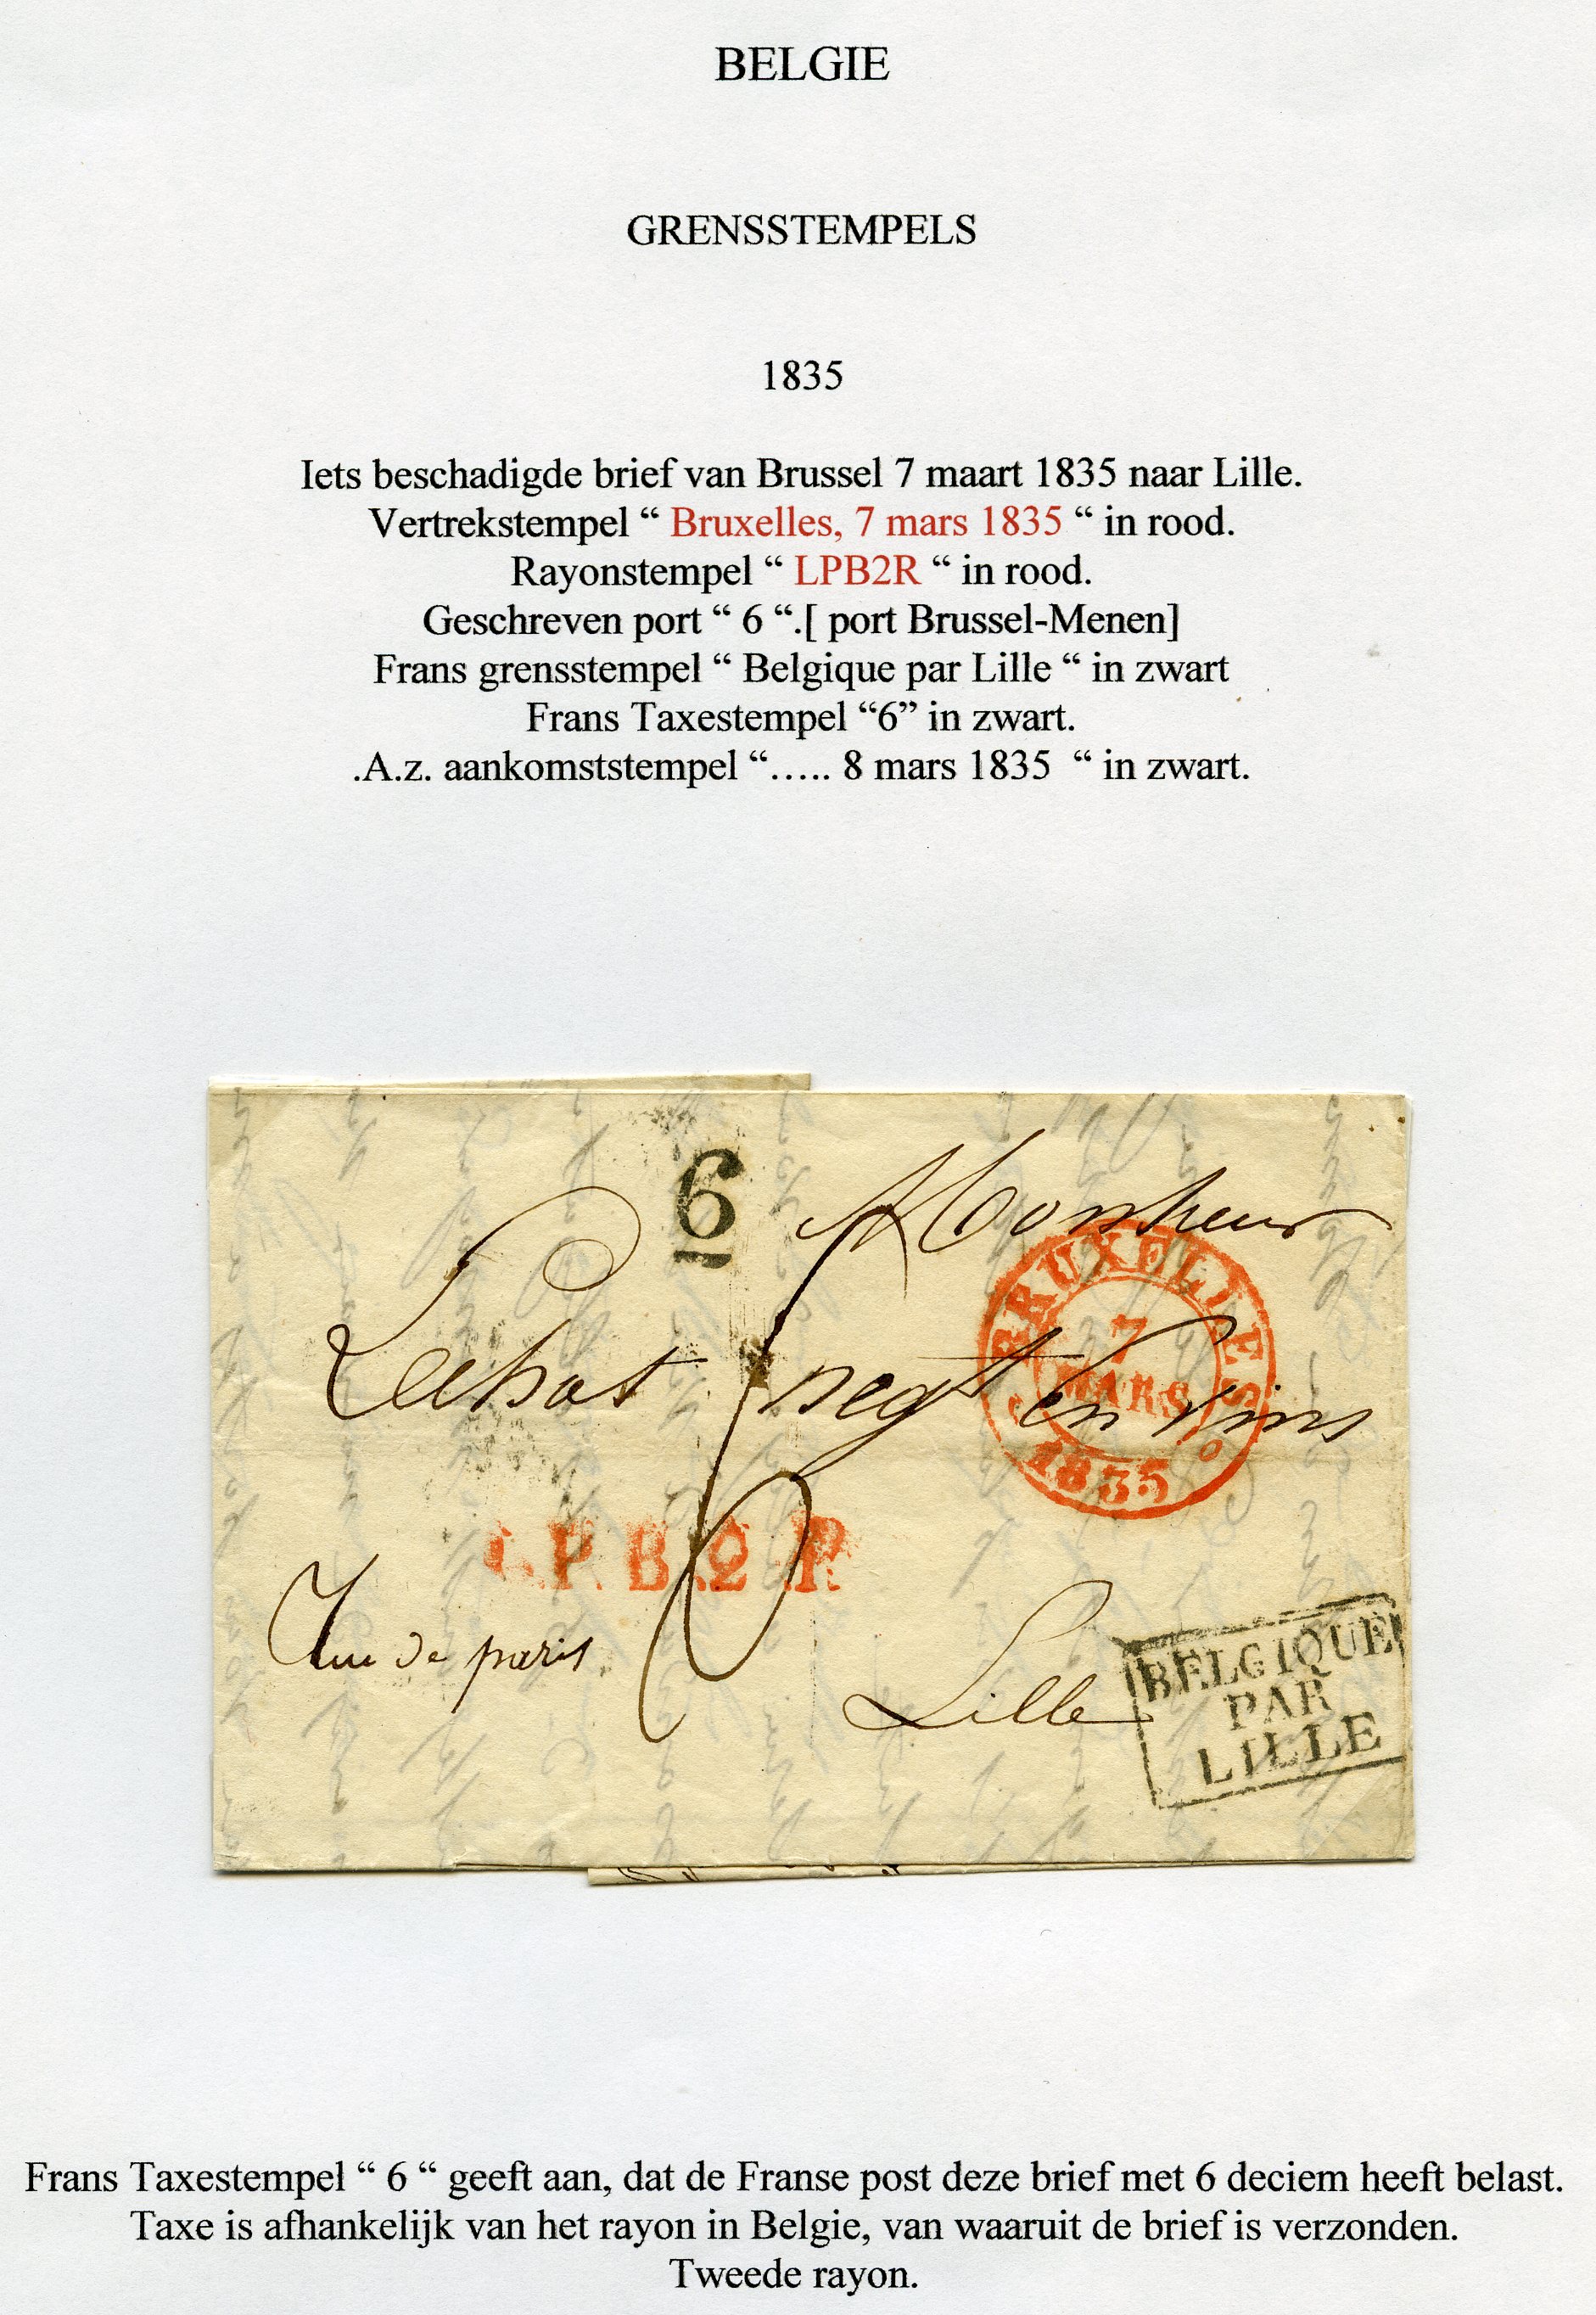 BELGIE
GRENSSTEMPELS
1835
Iets beschadigde brief van Brussel 7 maart 1835 naar Lille.
Vertrekstempel “ Bruxelles, 7 mars 1835 “ in rood.
Rayonstempel “ LPB2R “ in rood.
Geschreven port “ 6 “.[ port Brussel-Menen]
Frans grensstempel “ Belgique par Lille “ in zwart
Frans Taxestempel “6” in zwart.
.A.z. aankomststempel “….. 8 mars 1835 “ in zwart.
6
Monsieur
BRUXELLES
7
MARS
1835
negt en vins
L.P.B.2.R
6
rue de paris
Lille
BELGIQUE
PAR
LILLE
Frans Taxestempel “ 6 “ geeft aan, dat de Franse post deze brief met 6 deciem heeft belast.
Taxe is afhankelijk van het rayon in Belgie, van waaruit de brief is verzonden.
Tweede rayon.